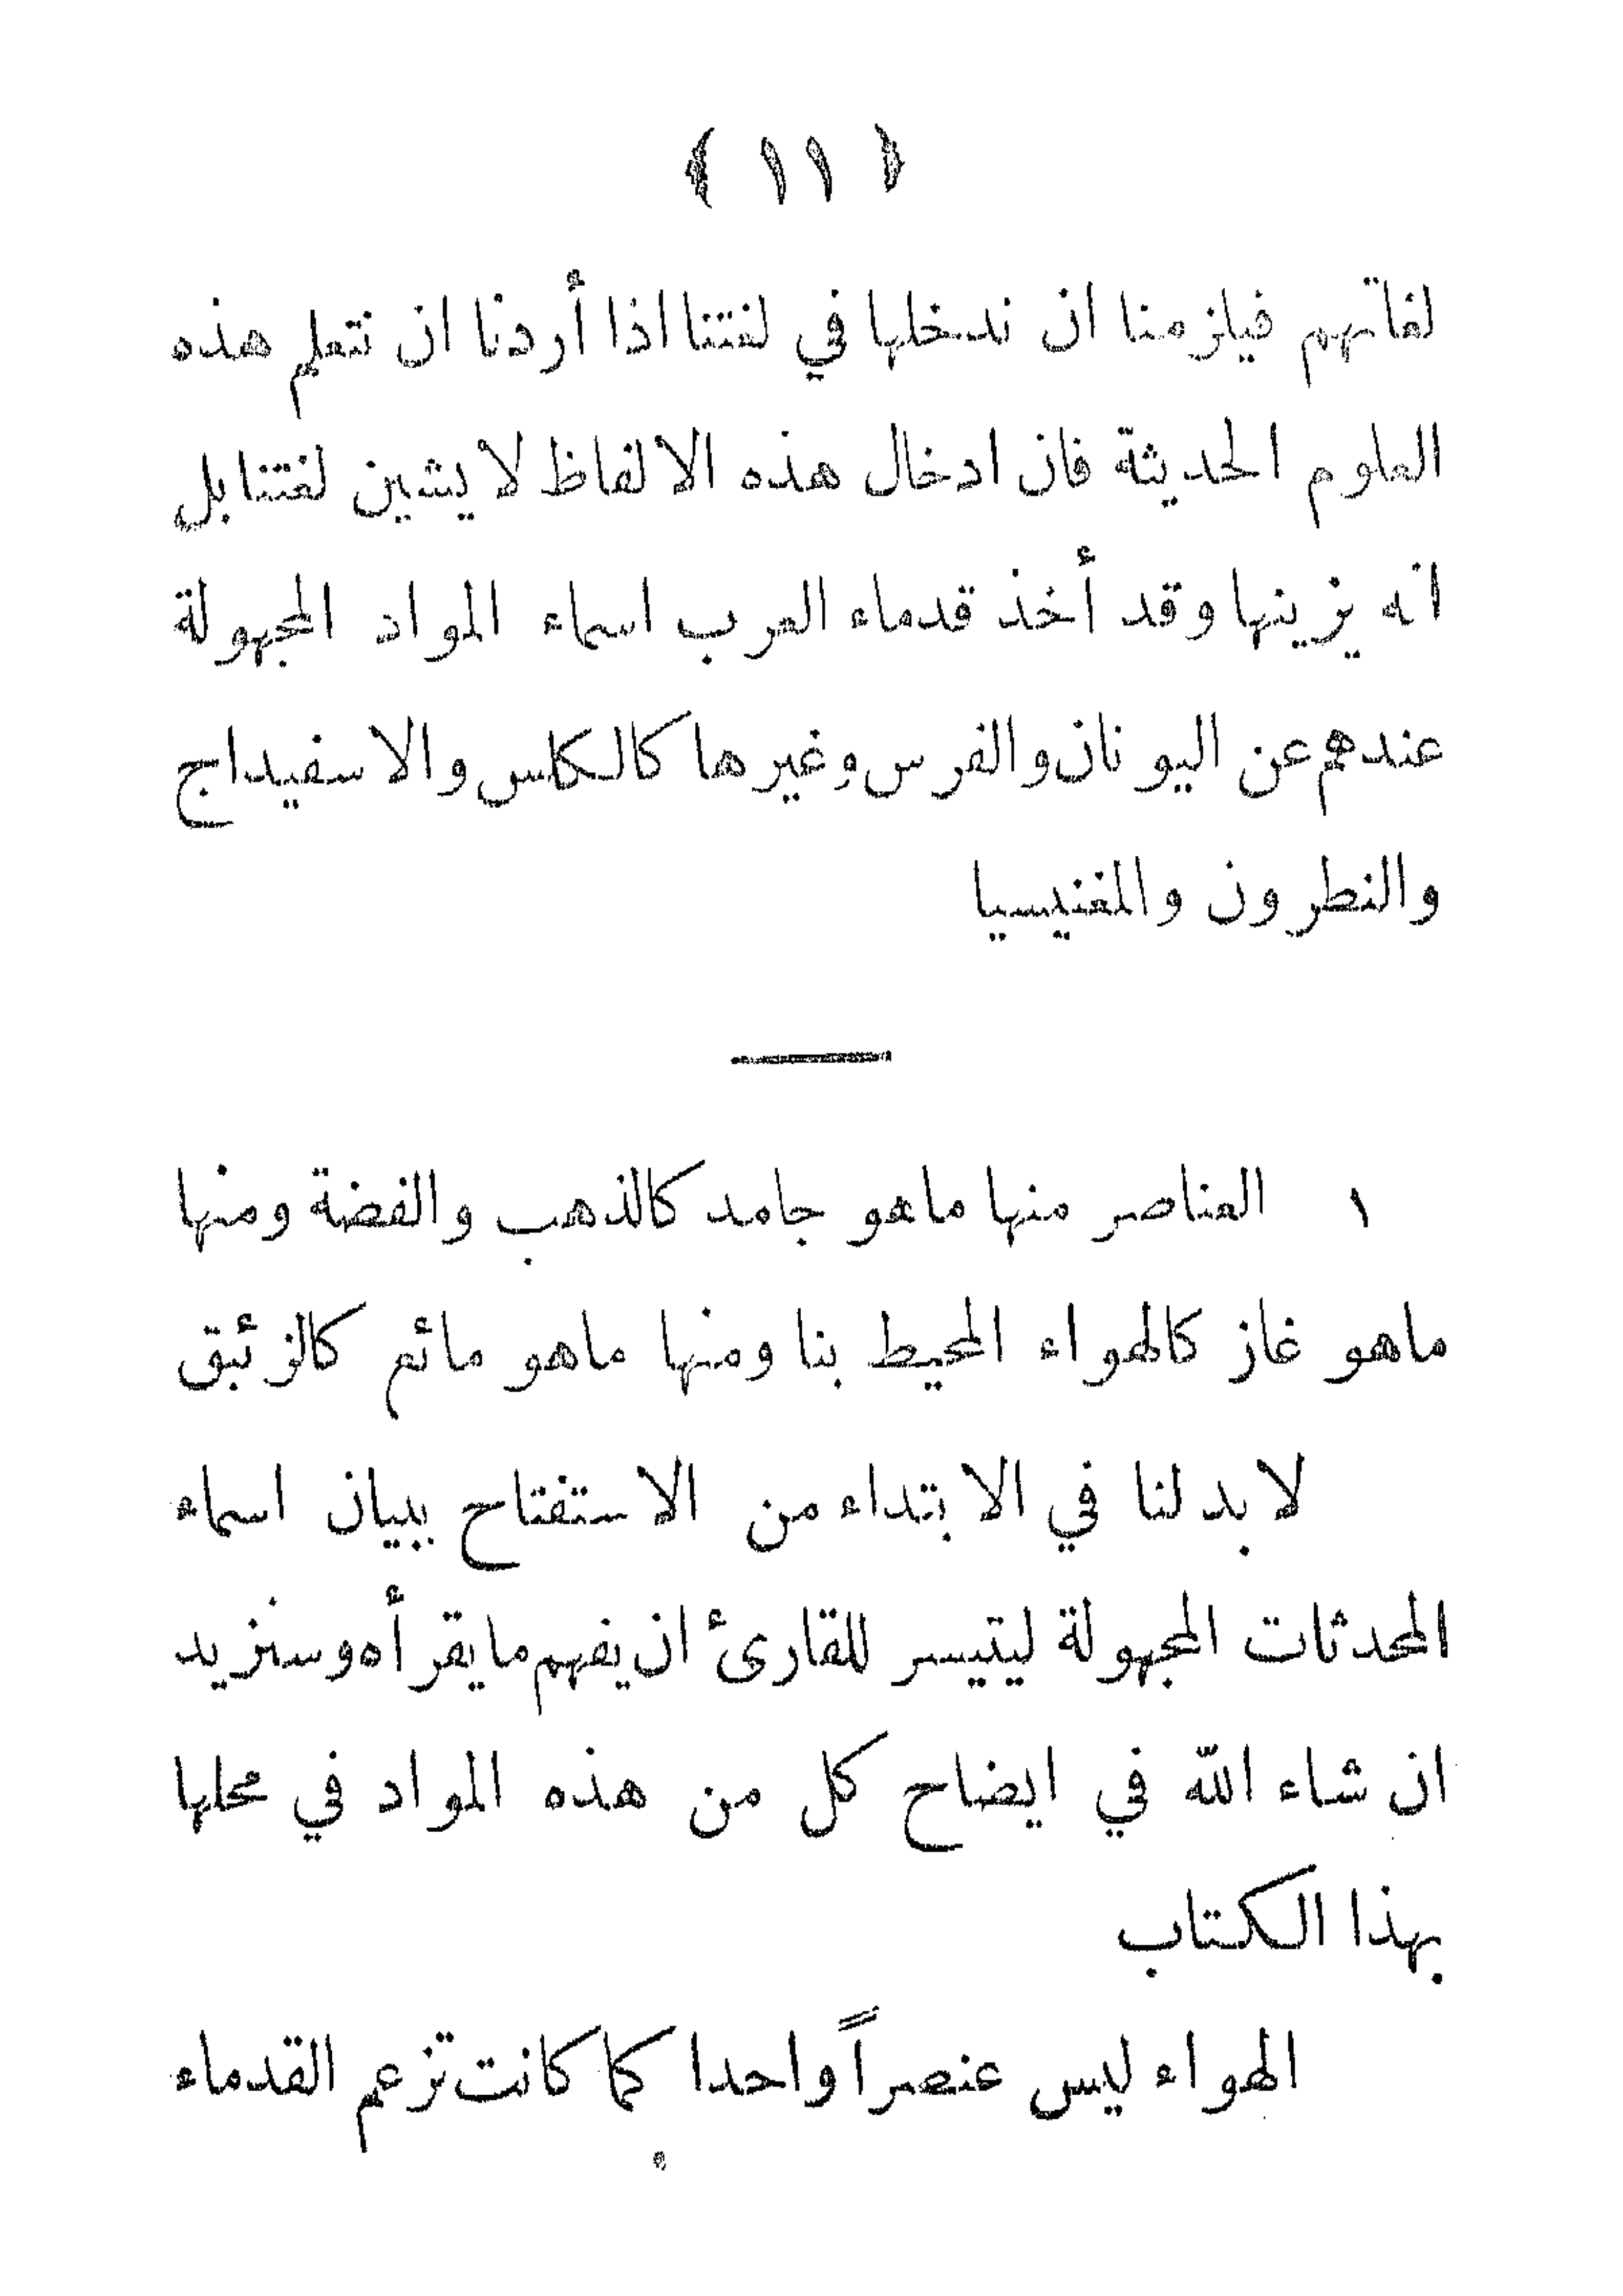 ﴿ ١١ ﴾
لغاتهم فيلزمنا ان ندخلها في لغتنا اذا أردنا ان نتعلم هذه
العلوم الحديثة فان ادخال هذه الالفاظ لا يشين لغتنا بل
انه يزينها وقد أخذ قدماء العرب اسماء المواد المجهولة
عندهم عن اليونان والفرس وغيرها كالكلس والاسفيداج
والنطرون والمغنيسيا
١ العناصر منها ماهو جامد كالذهب والفضة ومنها
ماهو غاز كالهواء المحيط بنا ومنها ماهو مائع كالزئبق
لا بد لنا في الابتداء من الاستفتاح ببيان اسماء
المحدثات المجهولة ليتيسر للقارئ ان يفهم ما يقرأه وسنزيد
ان شاء الله في ايضاح كل من هذه المواد في محلها
بهذا الكتاب
الهواء ليس عنصراً واحدا كما كانت تزعم القدماء